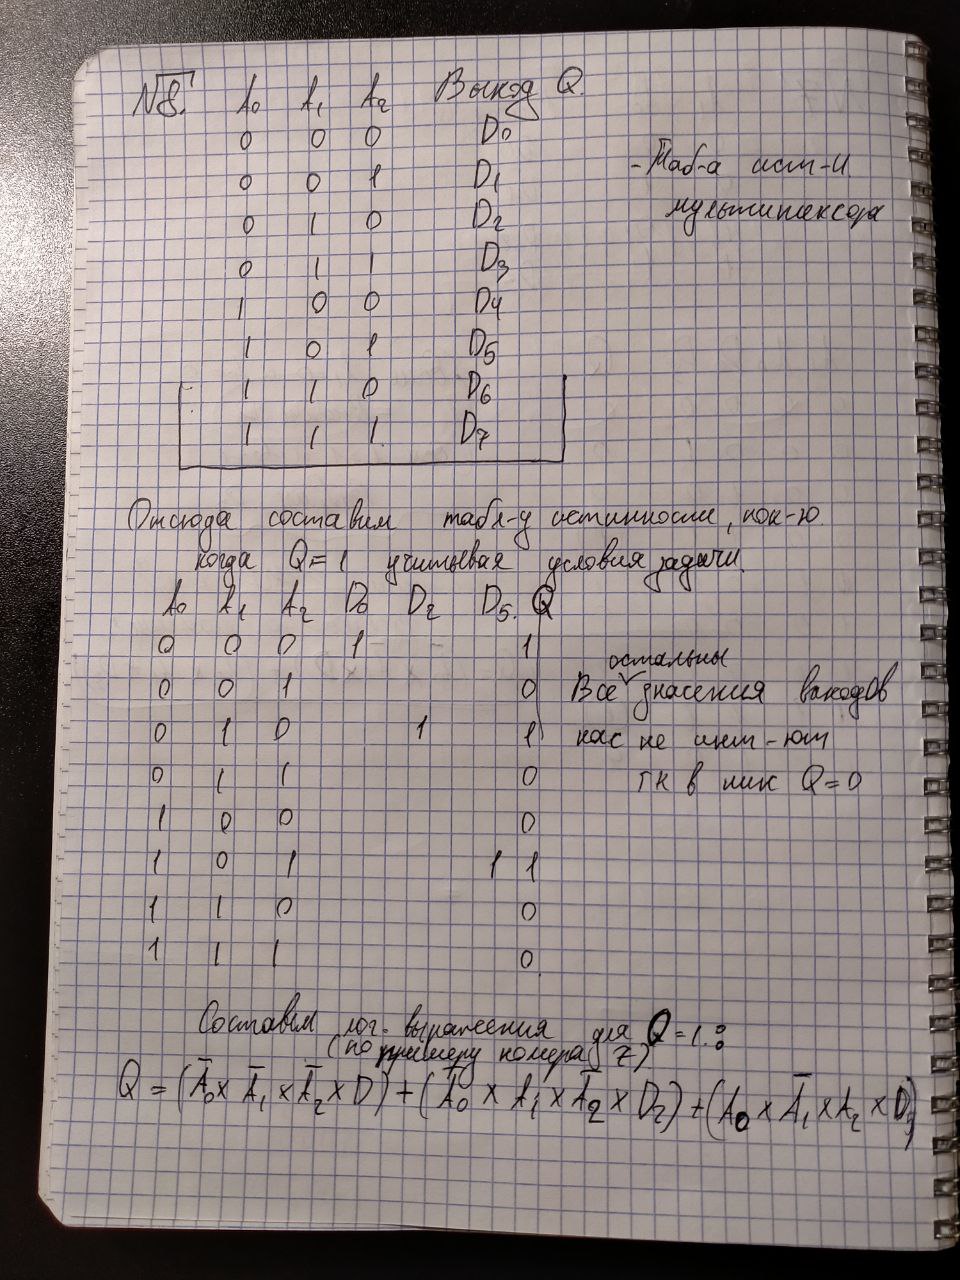 №8. A₀ A₁ A₂ Выход Q
0 0 0 D₀
0 0 1 D₁
0 1 0 D₂
0 1 1 D₃
1 0 0 D₄
1 0 1 D₅
1 1 0 D₆
1 1 1 D₇
- Таб-а ист-и
мультиплексора
Отсюда составим табл-у истинности, пок-ю
когда Q=1 учитывая условия задачи.
A₀ A₁ A₂ D₀ D₂ D₅. Q
0 0 0 1 - - 1
0 0 1 0
0 1 0 1 1
0 1 1 0
1 0 0 0
1 0 1 1 1
1 1 0 0
1 1 1 0
остальны
Все значения выходов
нас не инт-ют
тк в них Q=0
Составим лог. выражения для Q=1.:
(по примеру номера 7)
Q = (A̅₀ x A̅₁ x A̅₂ x D) + (A̅₀ x A₁ x A̅₂ x D₂) + (A₀ x A̅₁ x A₂ x D₅)